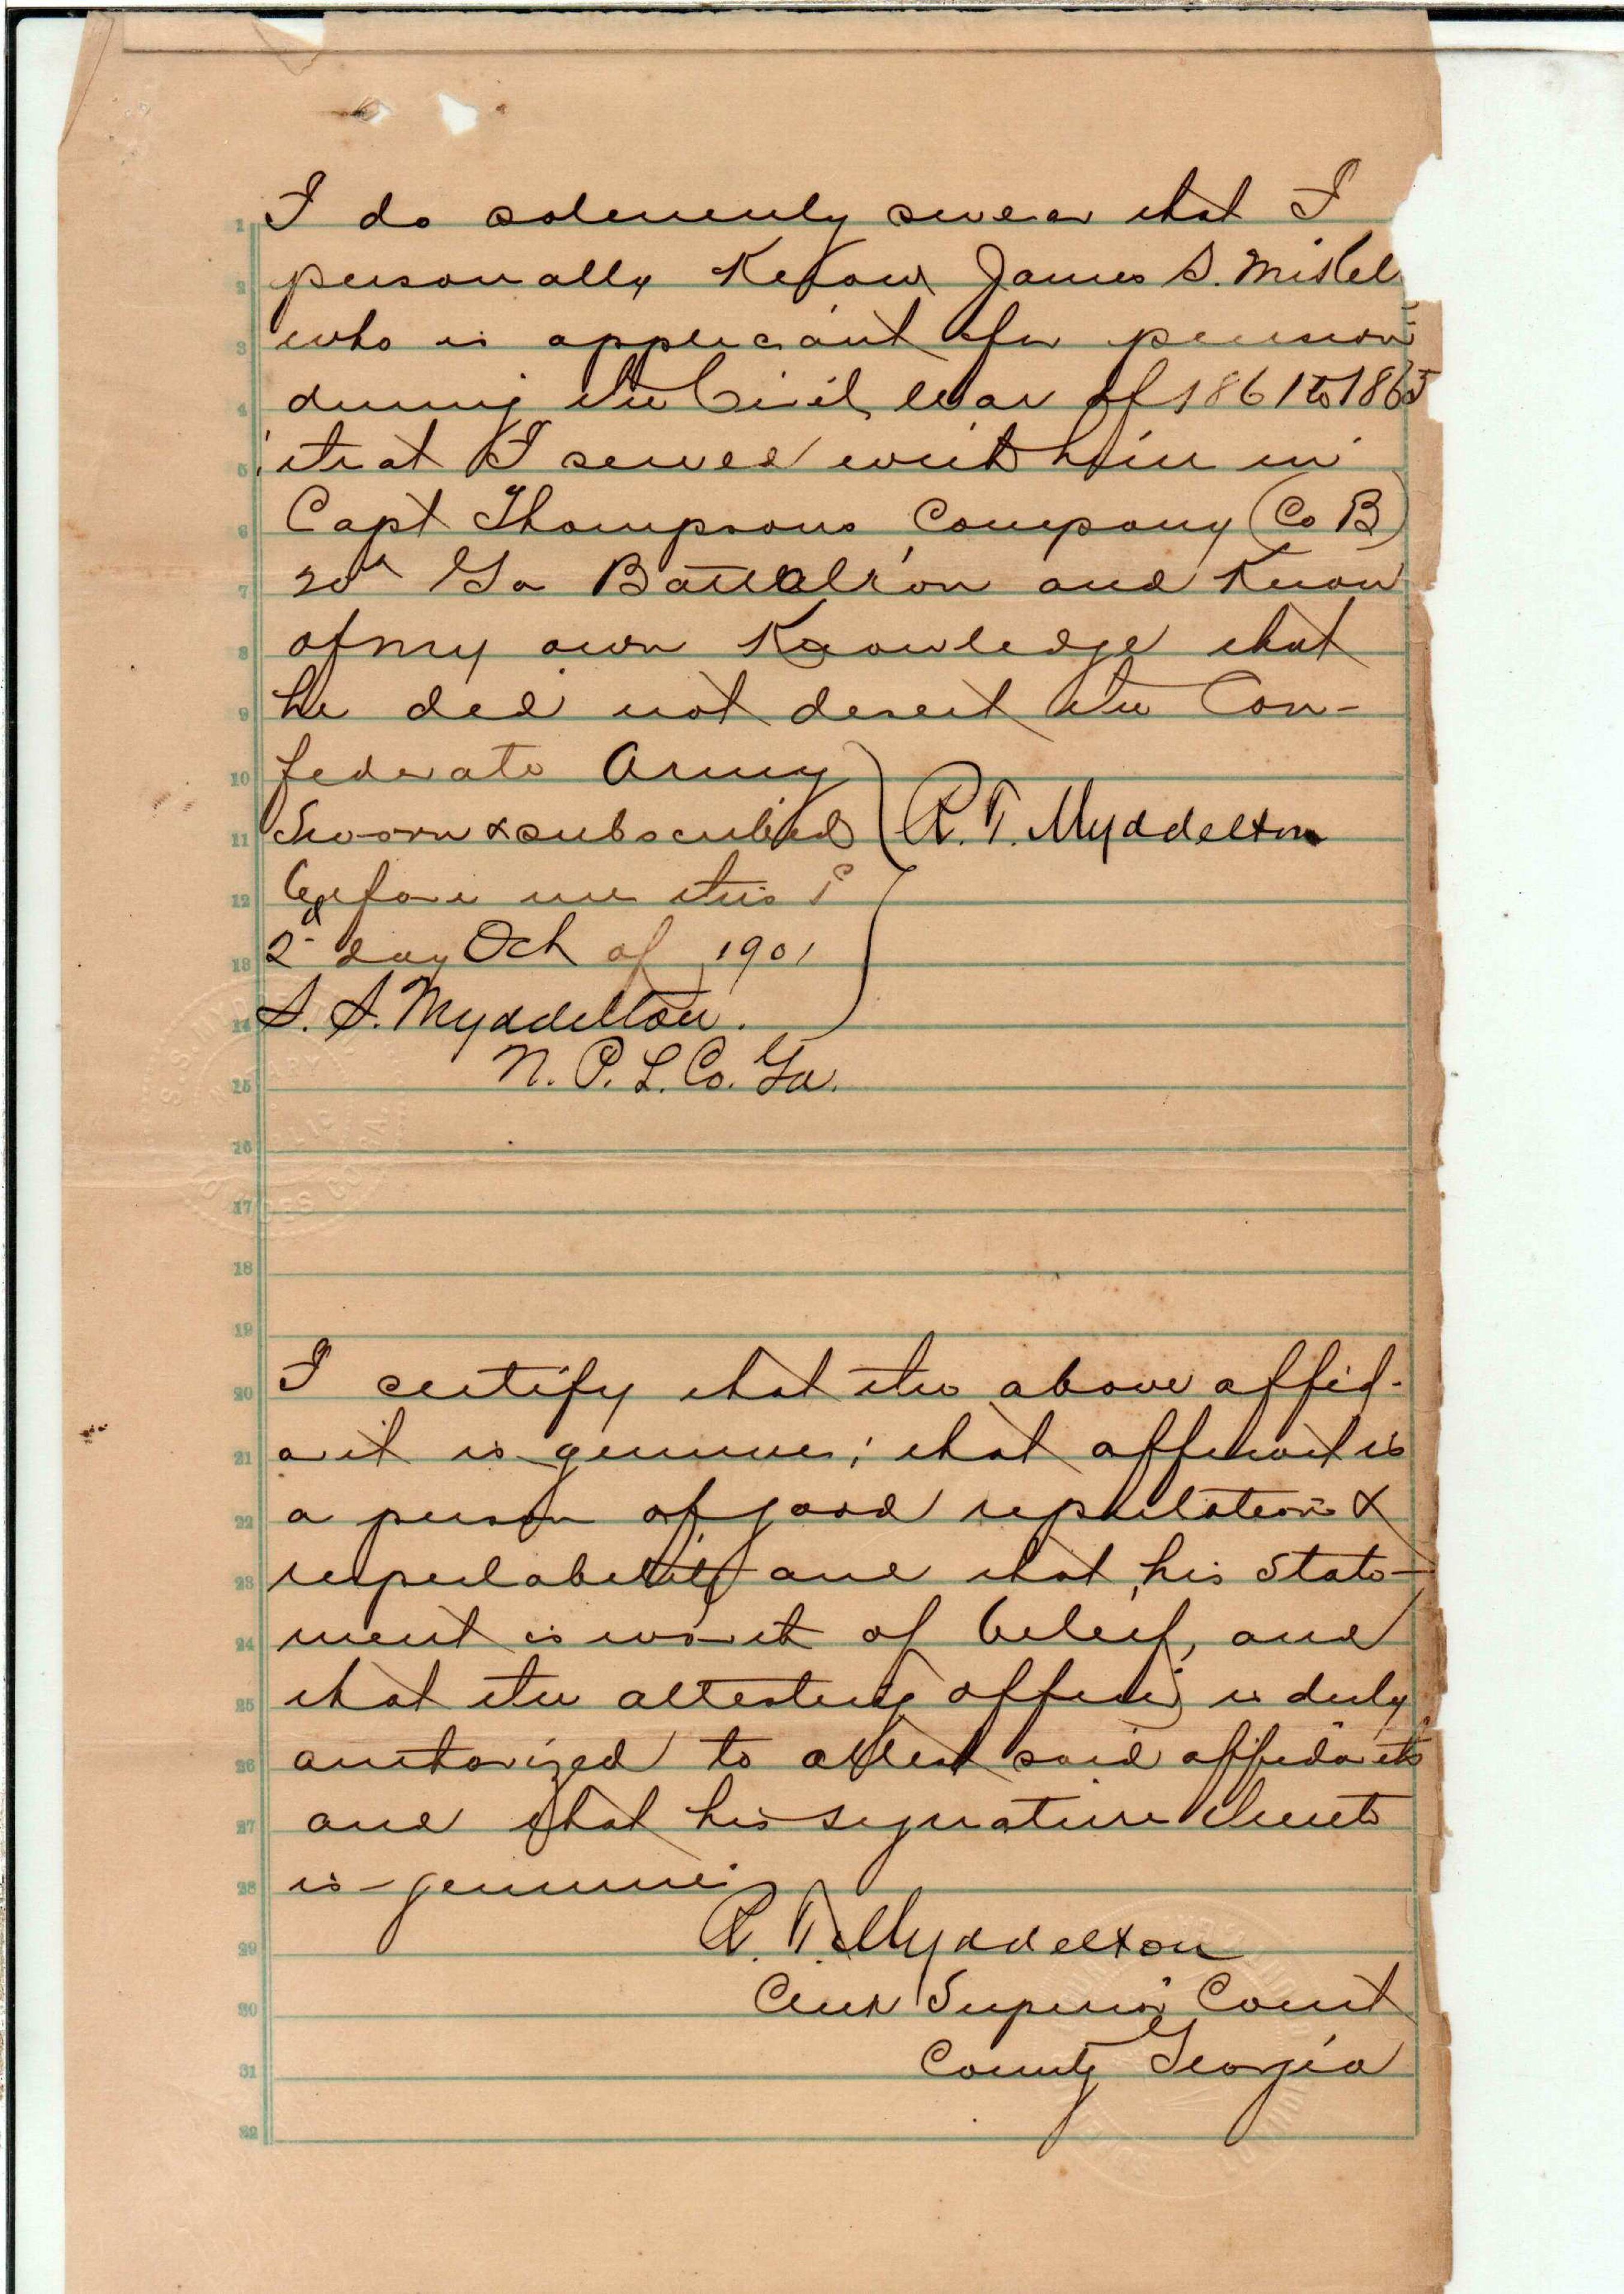 I do solemnly swear that I
personally Know James S. Mikel
who is applicant for pension
during the Civil War of 1861 to 1865
that I served with him in
Capt Thompsons Company (Co B)
20th Ga Battalion and Know
of my own Knowledge that
he did not desert the Con-
federate Army
Sworn & subscribed R. T. Myddelton
before me this
2d day Oct of 1901
S. S. Myddelton.
N. P. L. Co. Ga.
I certify that the above affid-
avit is genuine; that affiant is
a person of good reputation &
respectability and that his State-
ment is worth of belief, and
that the attesting officer is duly
authorized to attest said affidavits
and that his signature thereto
is genuine
R. T. Myddelton
Clerk Superior Court
County Georgia
1
2
3
4
5
6
7
8
9
10
11
12
13
14
15
16
17
18
19
20
21
22
23
24
25
26
27
28
29
30
31
32